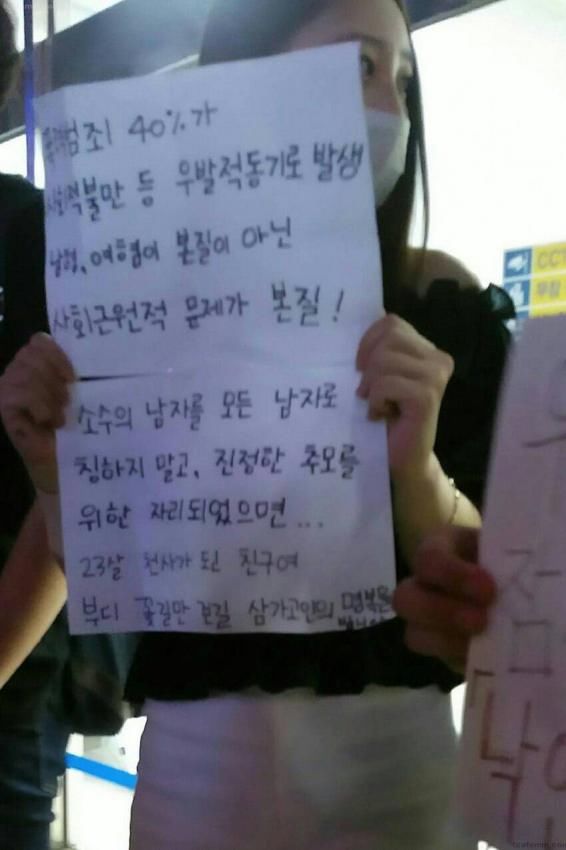 범죄 40%가
사회적불만 등 우발적동기로 발생
남혐, 여혐이 본질이 아닌
사회근원적 문제가 본질!
소수의 남자를 모든 남자로
칭하지 말고, 진정한 추모를
위한 자리되었으면...
23살 천사가 된 친구여
부디 꽃길만 걷길 삼가고인의 명복을
CCT